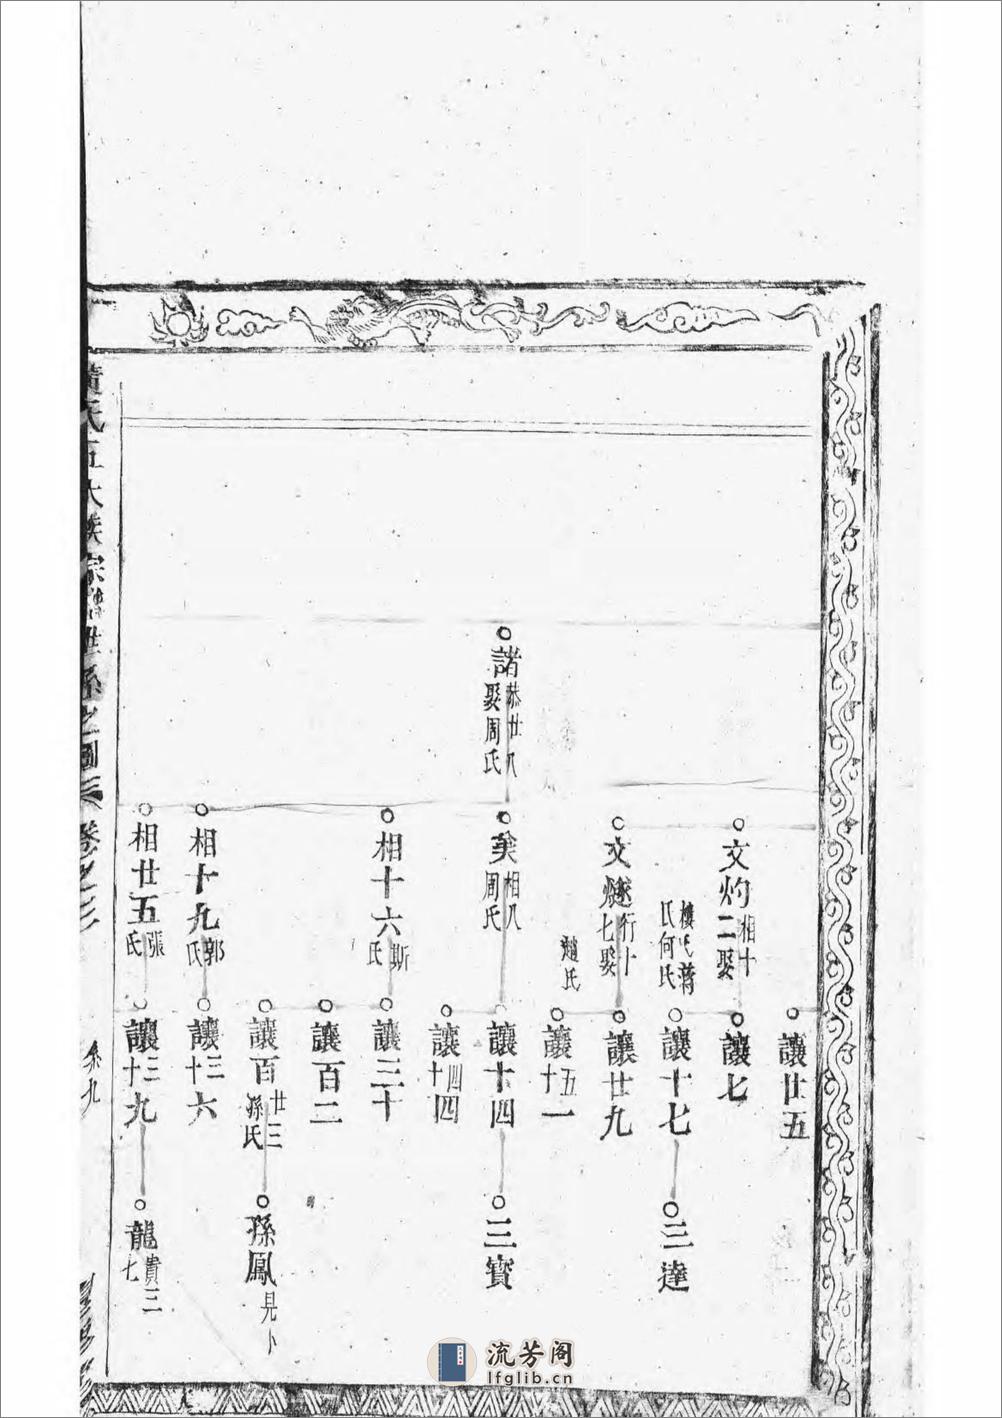 諸 恭廿八 娶周氏
文灼 相十二娶
樓氏蔣氏何氏
文燧 行十七娶
趙氏
相八 周氏
相十六 斯氏
相十九 郭氏
相廿五 張氏
讓廿五
讓七
讓十七
讓廿九
讓五十一
讓十四
讓四十四
讓三十
讓百二
讓百廿三 孫氏
讓三十六
讓三十九
三達
三寳
孫鳳 見卜
龍七 貴三
黃氏 大 宗譜世系之圖 卷之三
系九
流芳阁
lfglib.cn